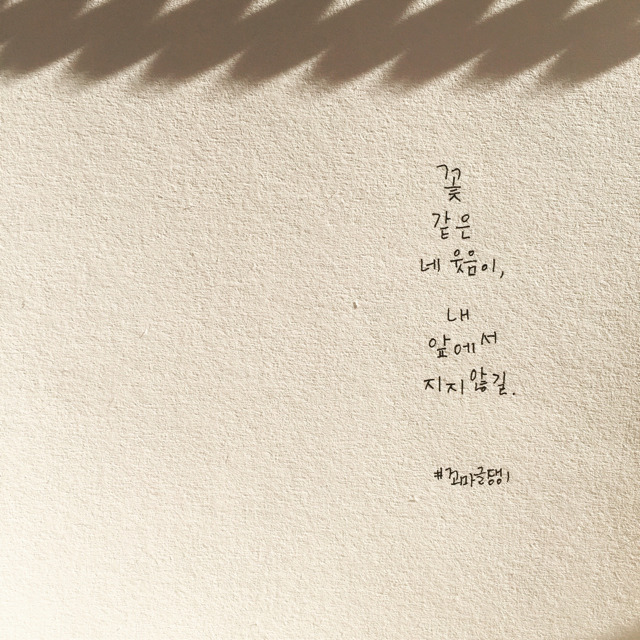 꽃
같은
네 웃음이,
내
앞에서
지지 않길.
#꼬마글댕이